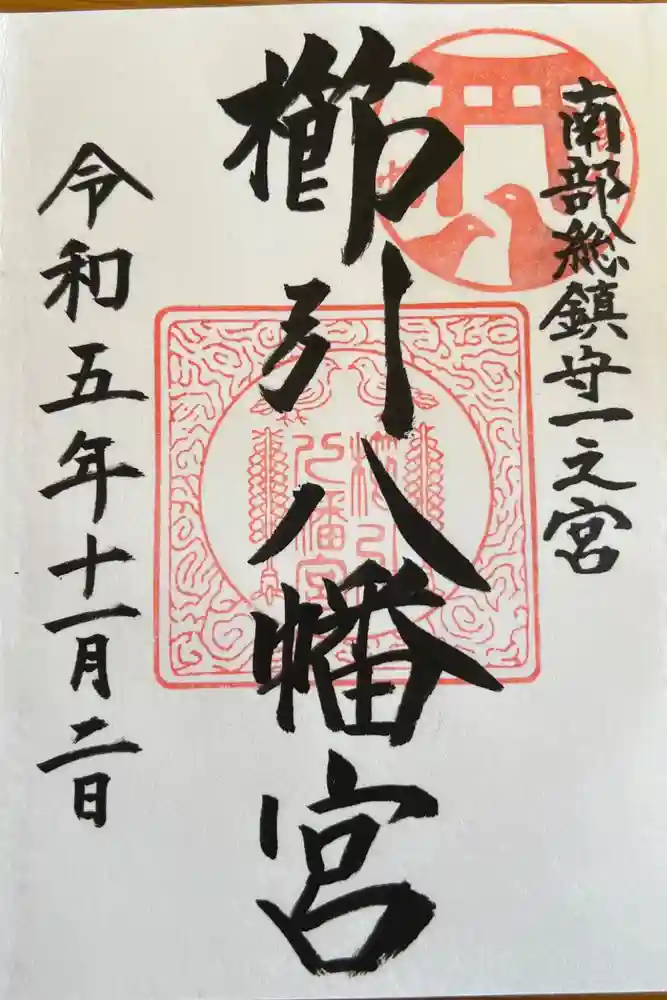 南部総鎮守一之宮
櫛引八幡宮
令和五年十一月二日
櫛引
八幡宮